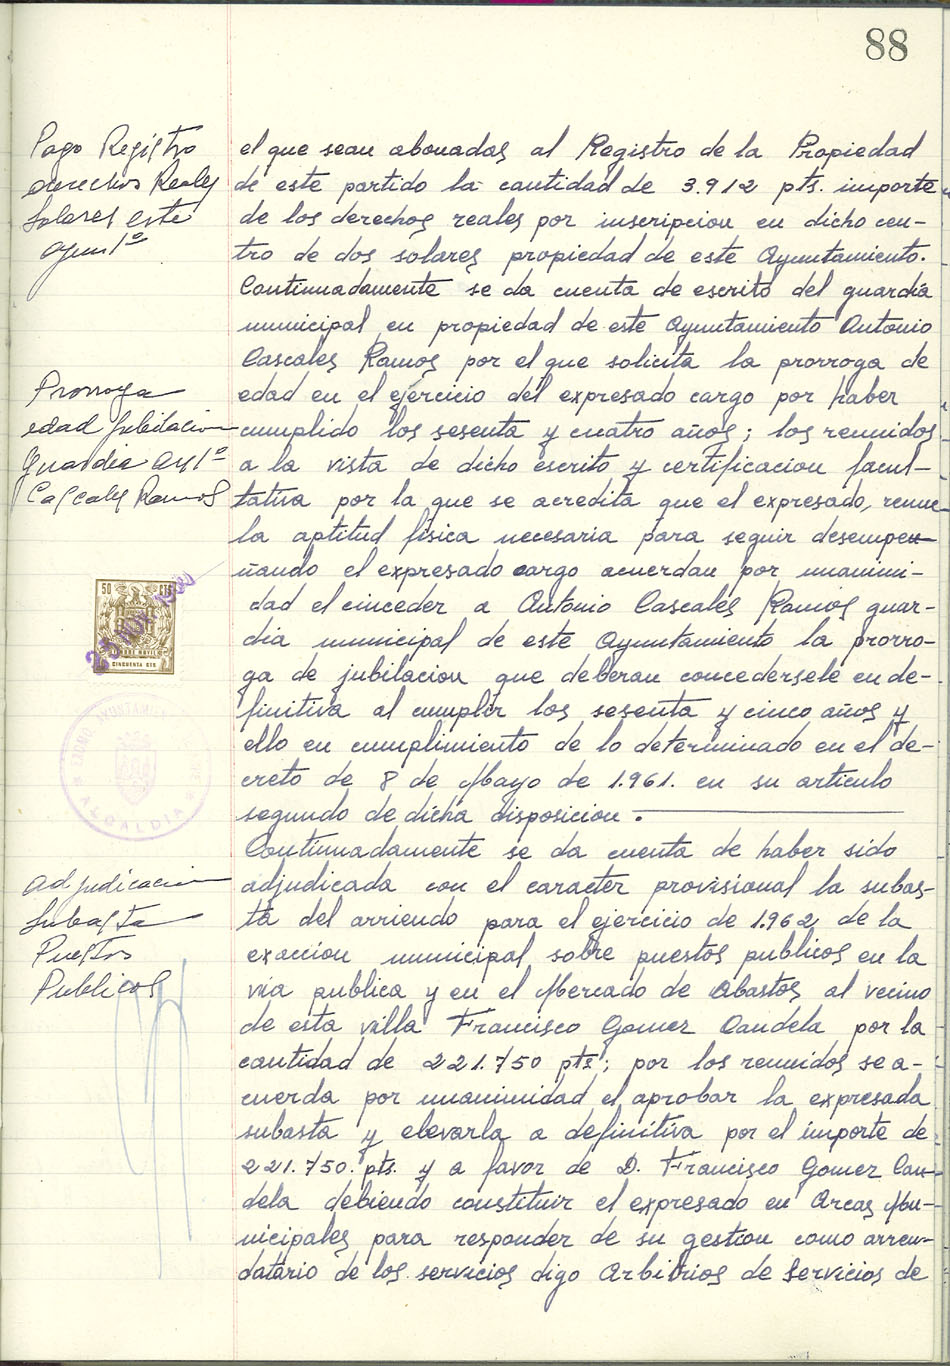 88
Pago Registro
derechos Reales
Solares este
Aymtº
el que sean abonadas al Registro de la Propiedad
de este partido la cantidad de 3.912 pts. importe
de los derechos reales por inscripcion en dicho cen-
tro de dos solares propiedad de este Ayuntamiento.
Continuadamente se da cuenta de escrito del guardia
municipal en propiedad de este Ayuntamiento Antonio
Cascales Ramos por el que solicita la prorroga de
Prorroga
edad Jubilacion
Guardia Aytº
Cascales Ramos
edad en el ejercicio del expresado cargo por haber
cumplido los sesenta y cuatro años; los reunidos
a la vista de dicho escrito y certificacion facul-
tativa por la que se acredita que el expresado, reune
la aptitud fisica necesaria para seguir desempe-
ñando el expresado cargo acuerdan por unanimi-
dad el cinceder a Antonio Cascales Ramos guar-
dia municipal de este Ayuntamiento la prorro-
ga de jubilacion que deberan concedersele en de-
finitiva al cumplir los sesenta y cinco años y
ello en cumplimiento de lo determinado en el de-
creto de 8 de Mayo de 1.961. en su articulo
segundo de dicha disposicion.
50 CTS
CINCUENTA CTS
ALCALDIA
Adjudicacion
Subasta
Puestos
Publicos
Continuadamente se da cuenta de haber sido
adjudicada con el caracter provisional la subas-
ta del arriendo para el ejercicio de 1.962 de la
exaccion municipal sobre puestos publicos en la
via publica y en el Mercado de Abastos al vecino
de esta villa Francisco Gomez Candela por la
cantidad de 221.750 pts; por los reunidos se a-
cuerda por unanimidad el aprobar la expresada
subasta y elevarla a definitiva por el importe de
221.750. pts. y a favor de D. Francisco Gomez Can-
dela debiendo constituir el expresado en Arcas Mu-
nicipales para responder de su gestion como arren-
datario de los servicios digo Arbitrios de Servicios de